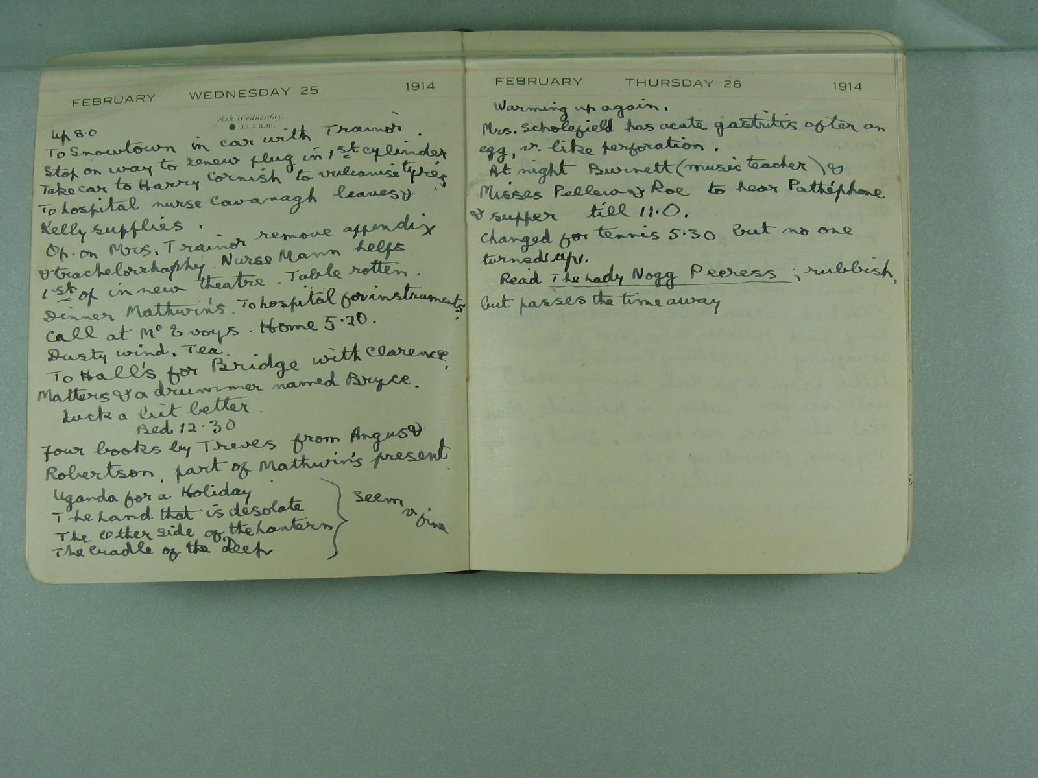 FEBRUARY WEDNESDAY 25 1914
Ash Wednesday.
Up 8.0
To Snowtown in car with Trainor.
Stop on way to renew plug in 1st cylinder
Take car to Harry Cornish to vulcanise tyres
To hospital nurse Cavanagh leaves &
Kelly supplies.
Op. on Mrs. Trainor remove appendix
& trachelorrhaphy Nurse Mann helps
1st op in new theatre. Table rotten.
Dinner Mathwin's. To hospital for instruments
Call at McEvoys. Home 5.30.
Dusty wind. Tea.
To Hall's for Bridge with Clarence
Matters & a drummer named Bryce.
Luck a bit better.
Bed 12.30
Four books by Treves from Angus &
Robertson, part of Mathwin's present
Uganda for a Holiday
The Land that is desolate
The other side of the Lantern
The Cradle of the deep
Seem v fine
FEBRUARY THURSDAY 26 1914
Warming up again.
Mrs. Scholefield has acute gastritis after an
egg, v. like perforation.
At night Burnett (music teacher) &
Misses Pellew & Roe to hear Pathéphone
& supper till 11.0.
Changed for tennis 5.30 but no one
turned up.
Read The Lady Nogg Peeress; rubbish,
but passes the time away